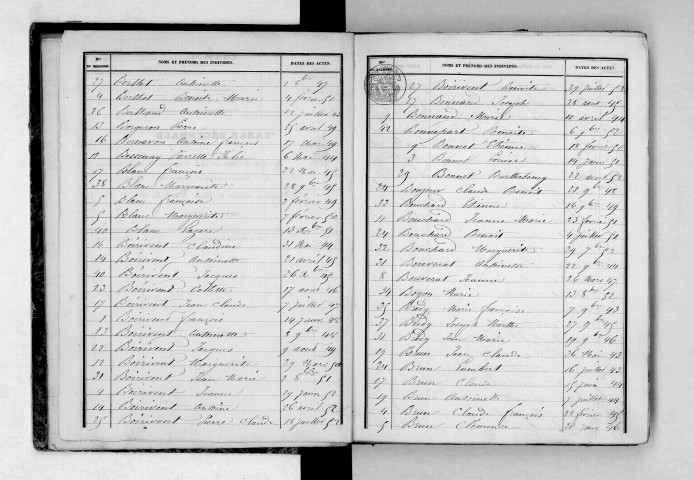 Nos
NOMS ET PRÉNOMS DES INDIVIDUS.
DATES DES ACTES.
27 Berthet Antoinette 47
4 Berthet Benoite Marie 4 février 50
26 Bertrand Antoinette 22 juillet
Pierre 25 avril 49
16 Antoine françois 17 mai 49
12 6 mai 44
17 Blanc françois 22 mai 45
38 Blanc Marguerite 28 9bre 45
5 Blanc françoise 2 février 49
5 Blanc Marguerite 7 février 50
40 Blanc 13 Xbre 51
16 Boirivent Claudine 31 mai 44
14 Boirivent Antoinette 21 avril 45
40 Boirivent Jacques 26 Xbre
23 Boirivent Collette 17 août 46
17 Boirivent Jean Claude 7 juillet 47
1 Boirivent françois 14 janv
33 Boirivent Antoinette 9bre 48
22 Boirivent Jacques 9 août 49
12 Boirivent Marguerite 29 mars 50
31 Boirivent Jean Marie 51
2 Boirivent Jeanne 19 janv 52
14 Boirivent Antoine 26 avril 52
25 Boirivent Pierre Claude 18 juillet 52
Nos
NOMS ET PRÉNOMS DES INDIVIDUS.
DATES DES ACTES.
27 Boirivent Benoite 29 juillet 52
27 Bonnard Joseph 28 août 45
9 Bonnard Marie 10 avril 44
42 Benoite 6 9bre 52
9 Bonnet Etienne 18 février 50
3 Bonnet Louise 14 janv 51
29 Bonnet Barthelemy 22 août 52
34 Bonjour Claude Benoit 21 9bre 48
33 Bouchard Etienne 16 9bre 49
11 Bouchard Jeanne Marie 23 février 51
24 Bouchard Benoit 4 juillet 51
32 Bouchard Marguerite 29 7bre 52
31 Bouverat Antoinette 22 9bre 44
8 Bouverat Jeanne 26 mars 47
34 Boyon Marie 13 8bre 52
35 Brédy Marie françoise 7 9bre 43
37 Brédy Joseph 27 7bre 45
31 Brédy Jean Marie 19 9bre 46
19 Brun Jean Claude 26 mai 43
24 Brun Lambert 16 juillet 43
17 Brun Claude 15 juin 44
19 Brun Antoinette 7 juillet 44
4 Brun Claude françois 21 février 45
5 Brun Clémence 20 janv 46